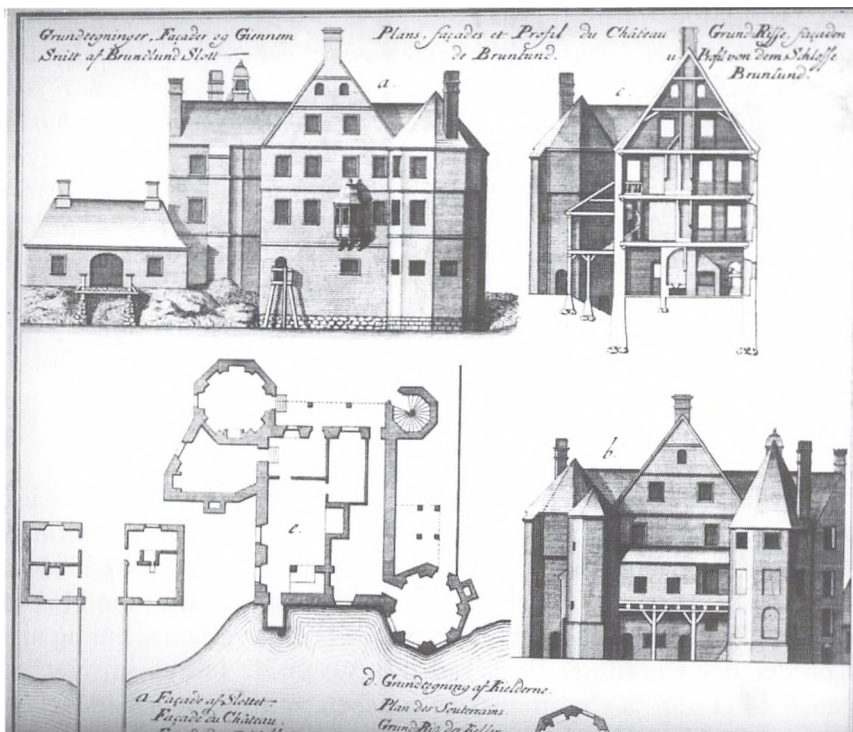 Grundtegninger, Façader og Giennem
Snitt af Brundlund Slott
Plans, façades et Profil du Château
de Brunlund.
Grund Risse, façaden
u Profil von dem Schlosse
Brunlund.
a.
c.
b.
e.
a Façade af Slottet
Façade du Château.
d. Grundtegning af Kielderne.
Plan des Souterrains.
Grund Ris der Keller